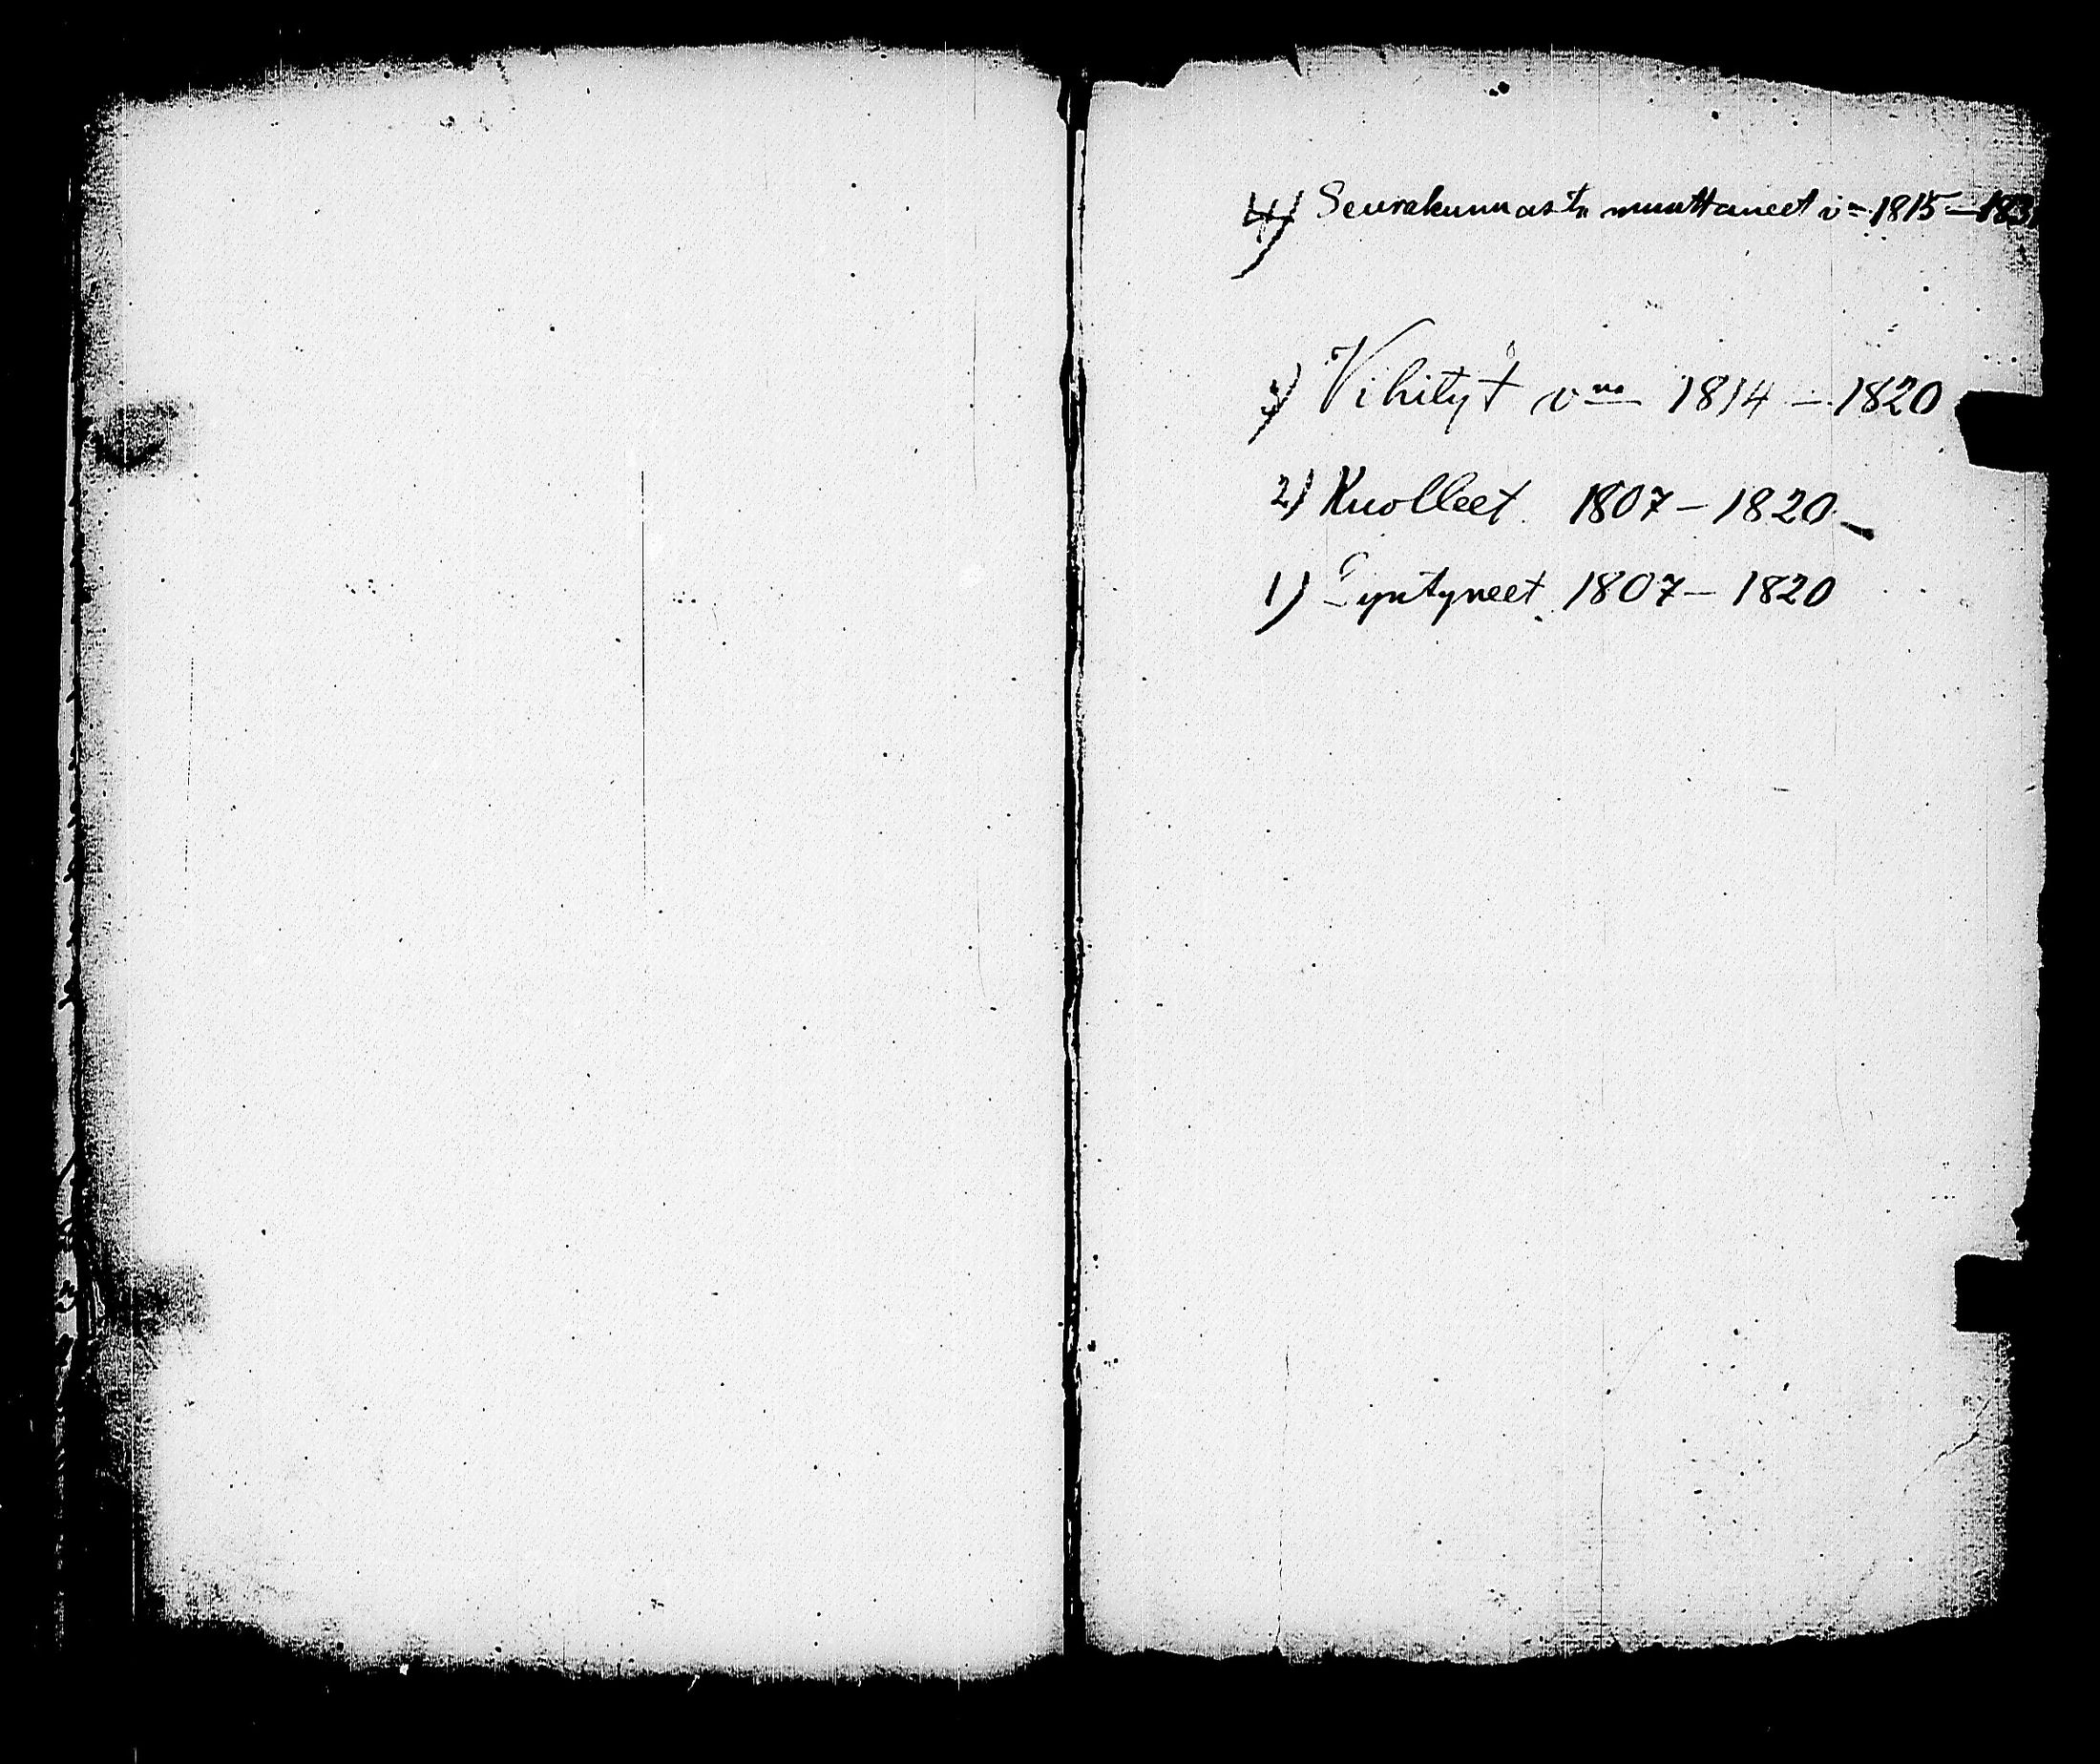 4) Seurakunnasta muuttaneet v= 1815 — 183
3) Vihityt v na 1814 — 1820
2) Kuolleet. 1807 — 1820
1) Syntyneet 1807 — 1820